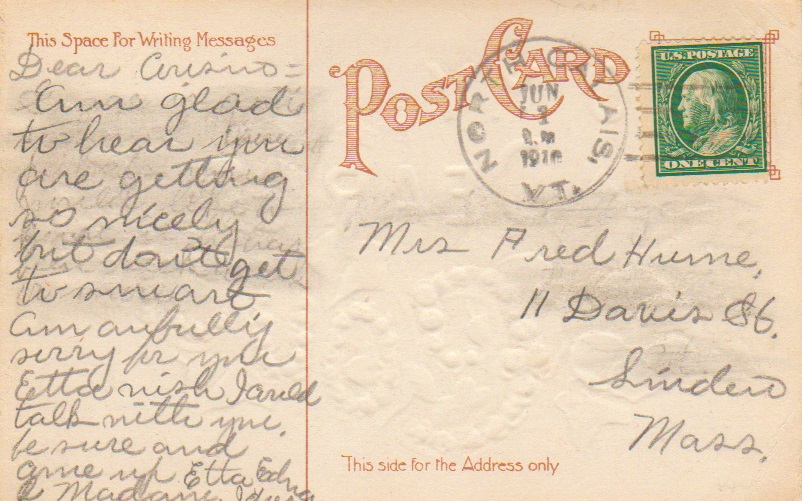 This Space For Writing Messages
Dear Cousino =
Am glad
to hear you
are getting
so nicely
but don't get
to smart
am awfully
sorry for you
Etta wish I could
talk with you.
be sure and
come up Etta Edna
& Madam
POST CARD
NORTH CALAIS, VT.
JUN
1910
U.S. POSTAGE
ONE CENT
Mrs Fred Hume,
11 Davis St.
Linden
Mass.
This side for the Address only